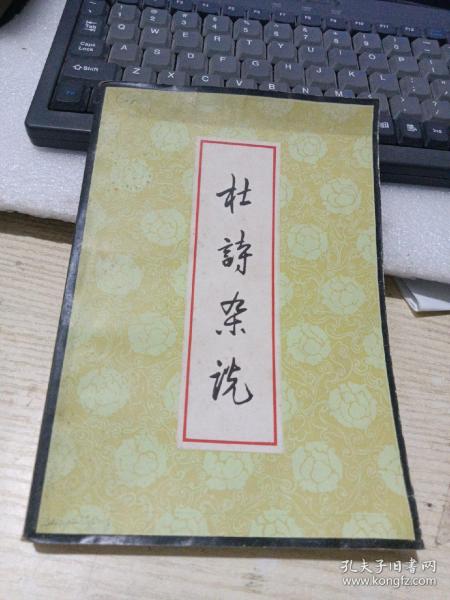 杜詩杂说
Caps Lock
Shift
Q W E R T Y U I O P
A S D F G H J K L
Z X C V B N M
孔夫子旧书网
www.kongfz.com